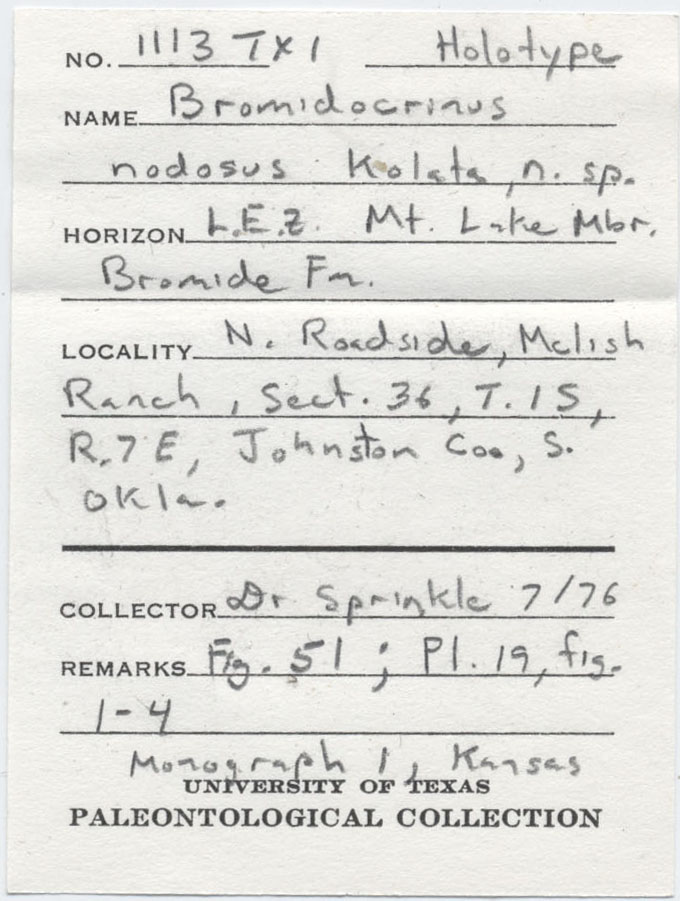 NO. 1113 TX 1 Holotype
NAME Bromidocrinus
nodosus Kolata, n. sp.
HORIZON L.E.Z. Mt. Lake Mbr.
Bromide Fm.
LOCALITY N. Roadside, Mclish
Ranch, Sect. 36, T. 1 S,
R. 7 E, Johnston Co., S.
Okla.
COLLECTOR Dr Sprinkle 7/76
REMARKS Fig. 51; Pl. 19, fig.
1-4
Monograph 1, Kansas
UNIVERSITY OF TEXAS
PALEONTOLOGICAL COLLECTION